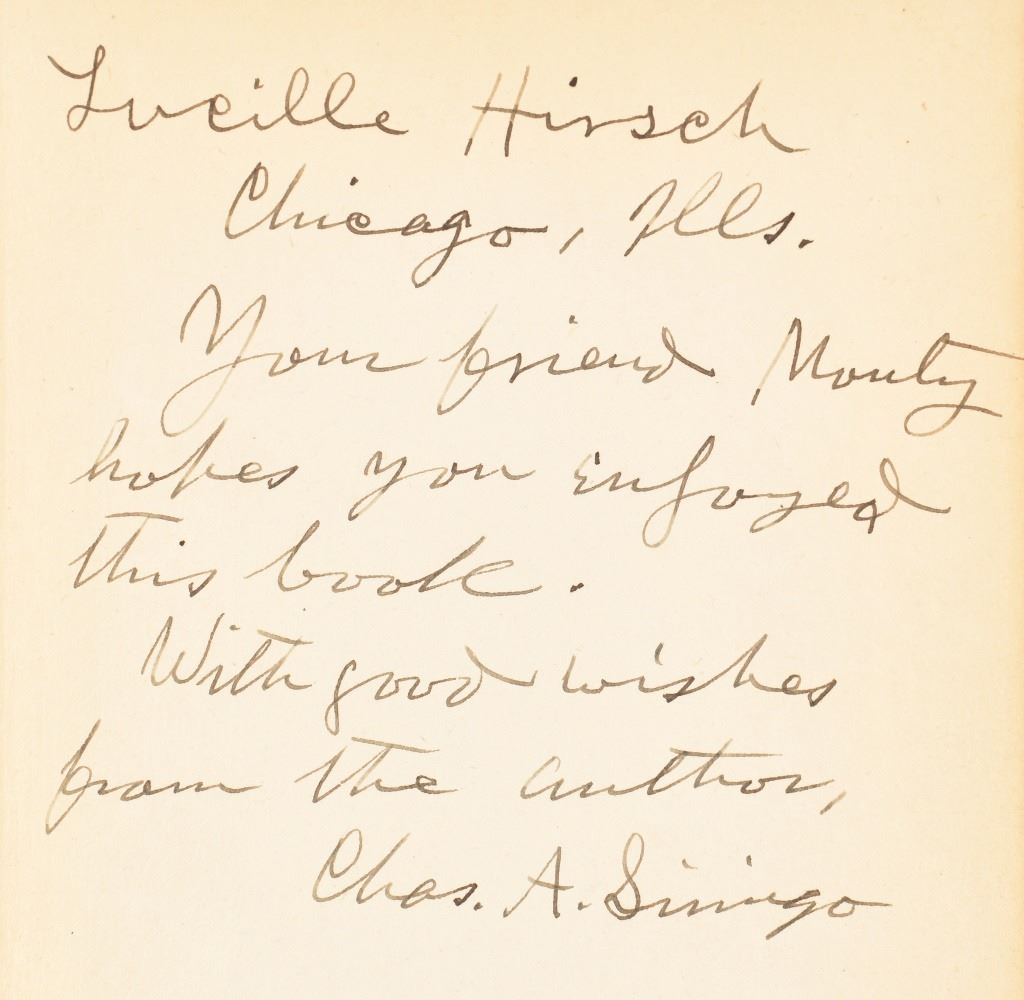 Lucille Hirsch
Chicago, Ills.
Your friend Monty
hopes you enjoyed
this book.
With good wishes
from the author,
Chas. A. Siringo